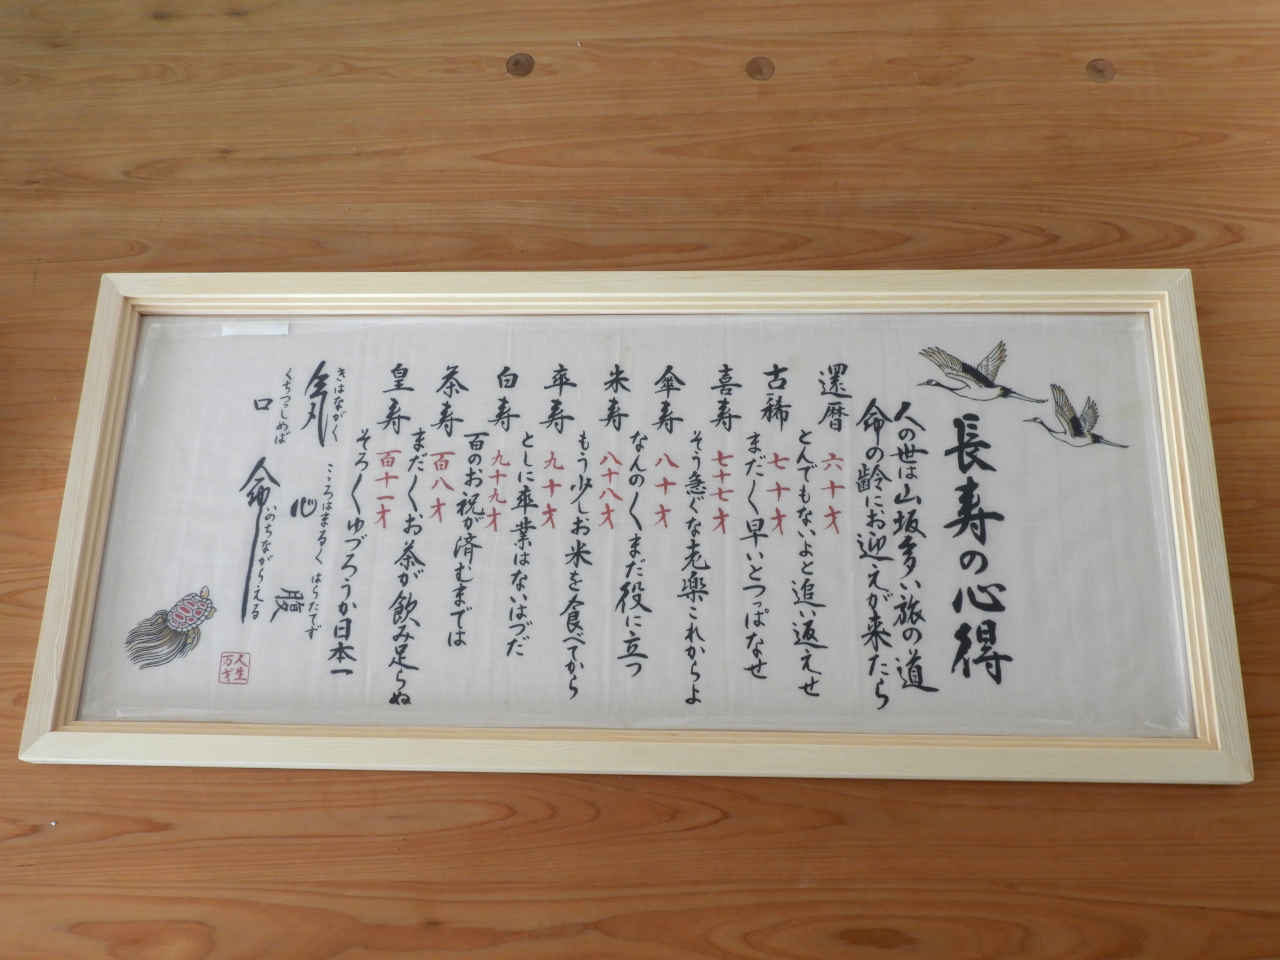 長寿の心得
人の世は山坂多い旅の道
命の齢にお迎えが来たら
還暦 六十才
とんでもないよと追い返えせ
古稀 七十才
まだ〱早いとつっぱなせ
喜寿 七十七才
そう急ぐな老楽これからよ
傘寿 八十才
なんの〱まだ役に立つ
米寿 八十八才
もう少しお米を食べてから
卒寿 九十才
としに卒業はないはづだ
白寿 九十九才
百のお祝が済むまでは
茶寿 百八才
まだ〱お茶が飲み足らぬ
皇寿 百十一才
そろ〱ゆづろうか日本一
きはながく
気
こころはまるく
心
はらたてず
腹
くちつつしめば
口
いのちながらえる
命
人生
万才